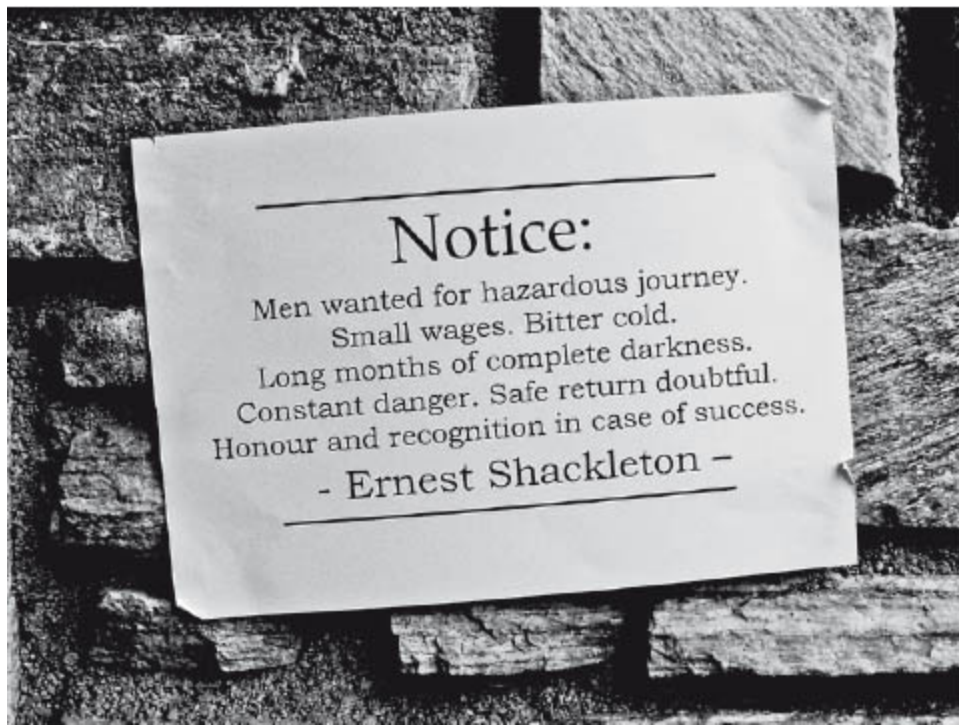 Notice:
Men wanted for hazardous journey.
Small wages. Bitter cold.
Long months of complete darkness.
Constant danger. Safe return doubtful.
Honour and recognition in case of success.
- Ernest Shackleton –